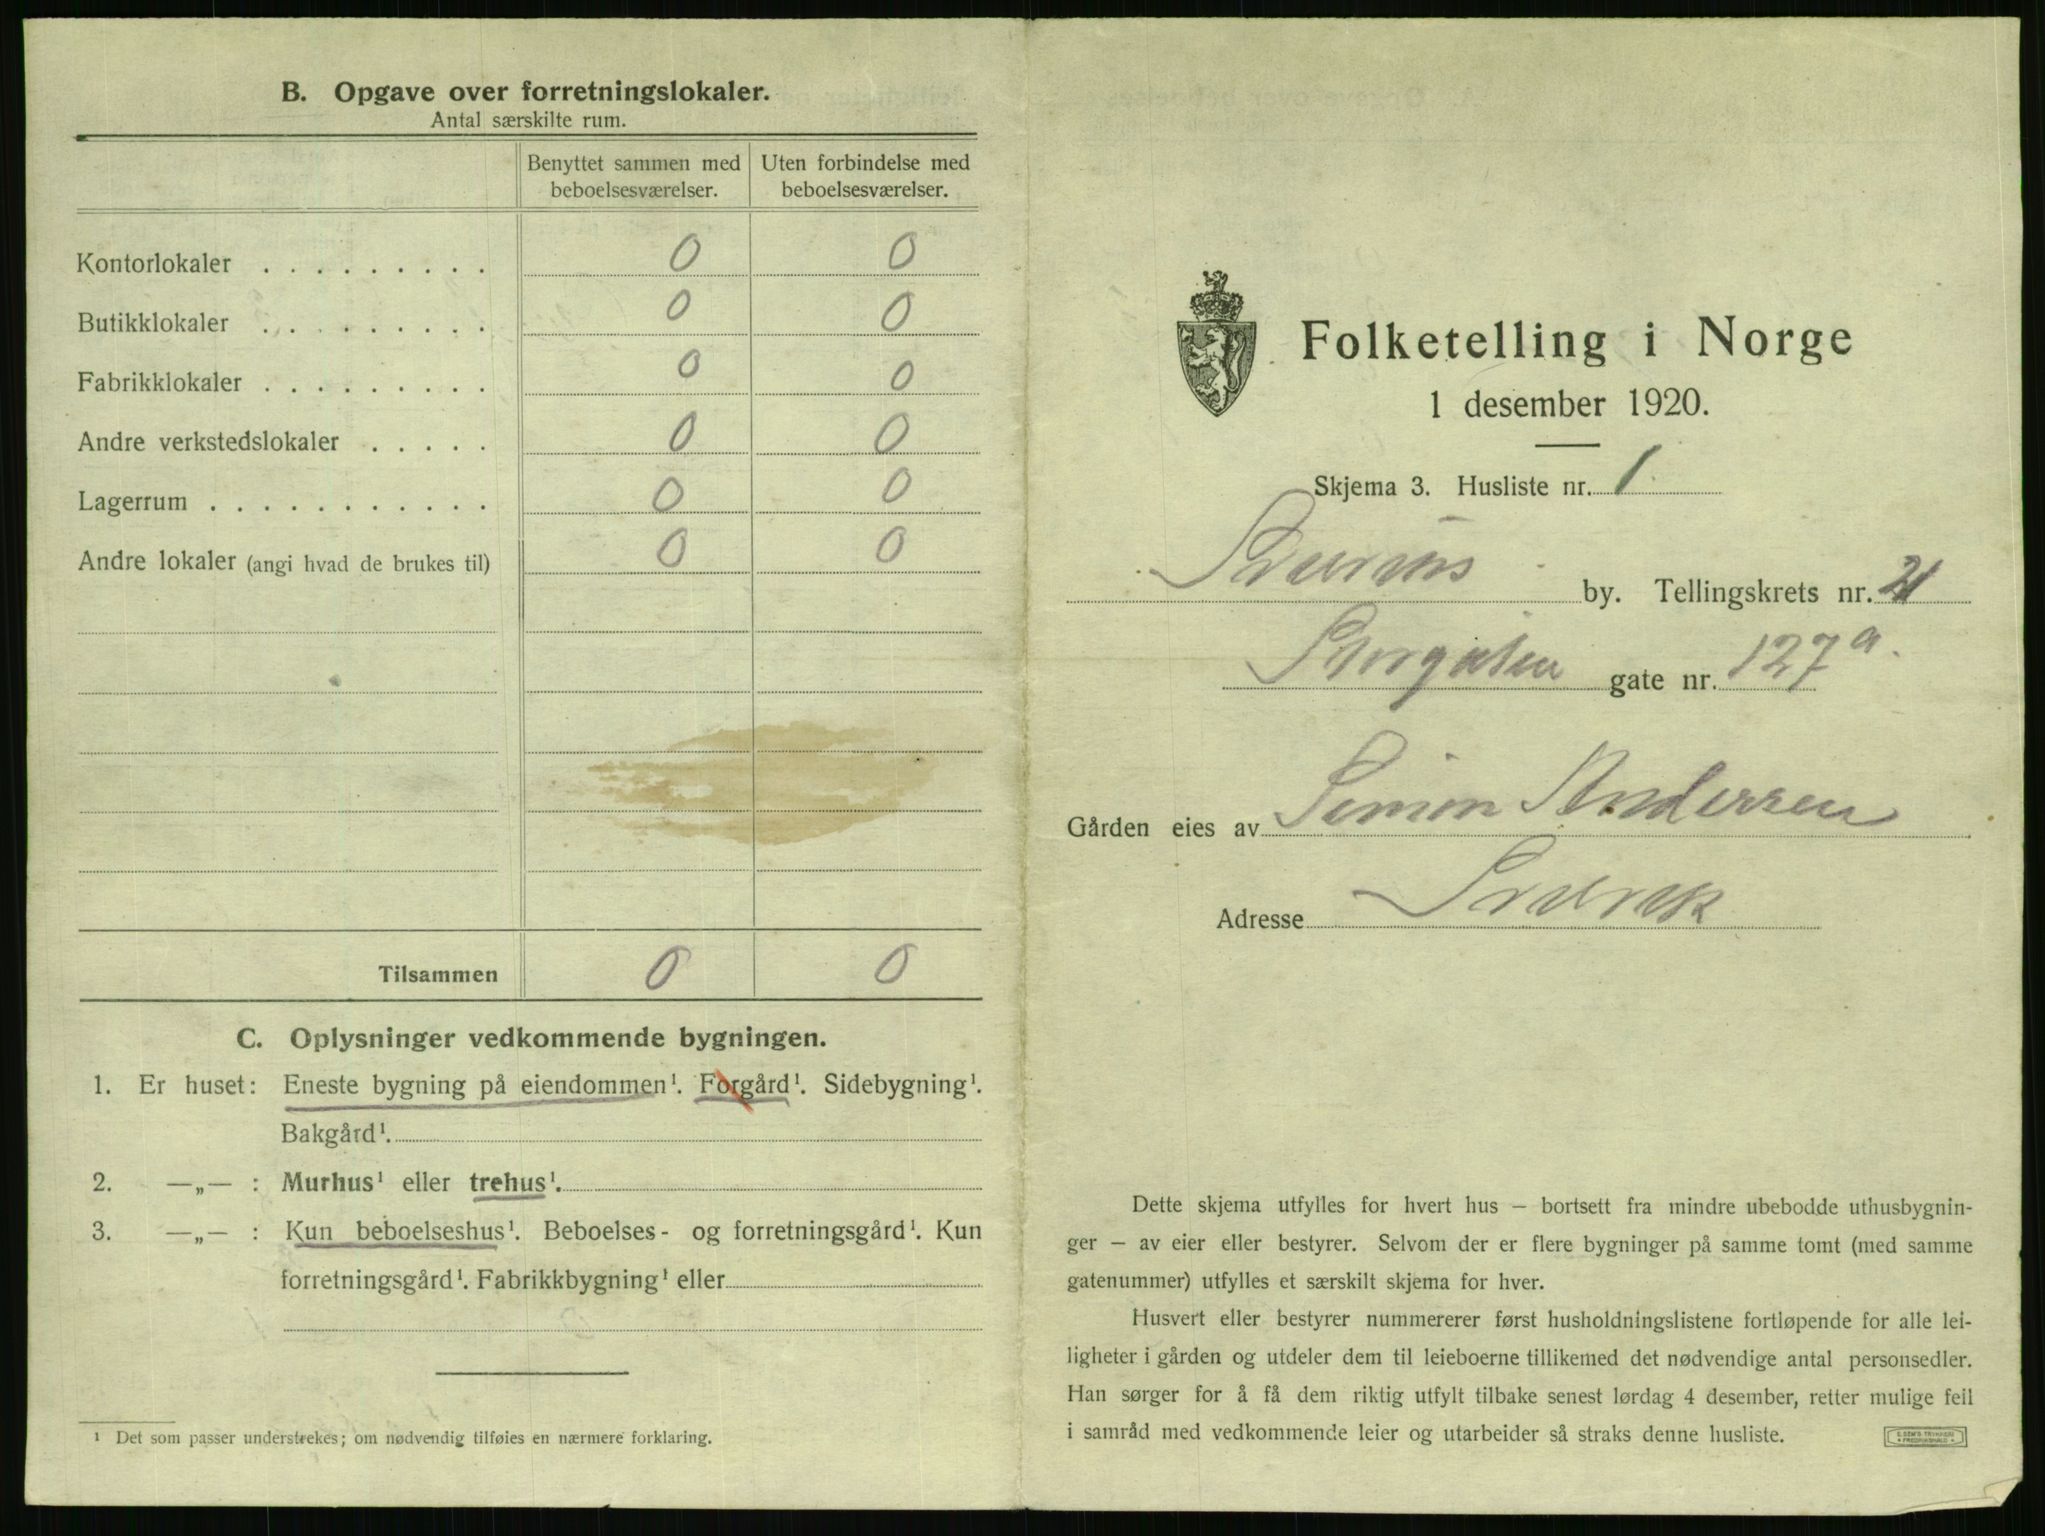 B. Opgave over forretningslokaler.
Antal særskilte rum.
Benyttet sammen med beboelsesværelser.
Uten forbindelse med beboelsesværelser.
Kontorlokaler . . . . . . . . . 0 0
Butikklokaler . . . . . . . . . 0 0
Fabrikklokaler . . . . . . . . . 0 0
Andre verkstedslokaler . . . . . 0 0
Lagerrum . . . . . . . . . . . 0 0
Andre lokaler (angi hvad de brukes til) 0 0
Tilsammen 0 0
C. Oplysninger vedkommende bygningen.
1. Er huset: Eneste bygning på eiendommen¹. Forgård¹. Sidebygning¹.
Bakgård¹.
2. —„— : Murhus¹ eller trehus¹.
3. —„— : Kun beboelseshus¹. Beboelses- og forretningsgård¹. Kun
forretningsgård¹. Fabrikkbygning¹ eller
¹ Det som passer understrekes; om nødvendig tilføies en nærmere forklaring.
Folketelling i Norge
1 desember 1920.
Skjema 3. Husliste nr. 1
by. Tellingskrets nr. 21
Storgaten gate nr. 127a.
Gården eies av Simon Andersen
Adresse
Dette skjema utfylles for hvert hus – bortsett fra mindre ubebodde uthusbygnin-
ger – av eier eller bestyrer. Selvom der er flere bygninger på samme tomt (med samme
gatenummer) utfylles et særskilt skjema for hver.
Husvert eller bestyrer nummererer først husholdningslistene fortløpende for alle lei-
ligheter i gården og utdeler dem til leieboerne tillikemed det nødvendige antal personsedler.
Han sørger for å få dem riktig utfylt tilbake senest lørdag 4 desember, retter mulige feil
i samråd med vedkommende leier og utarbeider så straks denne husliste.